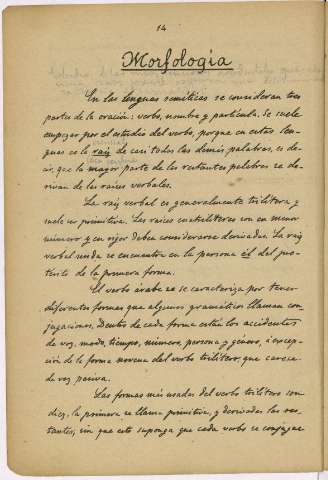 14
Morfología
En las lenguas semíticas se consideran tres
partes de la oración: verbo, nombre y partícula. Se suele
empezar por el estudio del verbo, porque en estas len-
guas es la raíz de casi todas las demás palabras, es de-
cir, que la mayor parte de las restantes palabras se de-
rivan de las raíces verbales.
La raíz verbal es generalmente trilítera y
suele ser primitiva. Las raíces cuatrilíteras son en menor
número y en rigor deben considerarse derivadas. La raíz
verbal ruda se encuentra en la persona él del pre-
térito de la primera forma.
El verbo árabe se caracteriza por tener
diferentes formas que algunos gramáticos llaman con-
jugaciones. Dentro de cada forma están los accidentes
de voz, modo, tiempo, número, persona y género, a excep-
ción de la forma novena del verbo trilítero, que carece
de voz pasiva.
Las formas más usadas del verbo trilítero son
diez, la primera se llama primitiva, y derivadas las res-
tantes, sin que esto suponga que cada verbo se conjugue